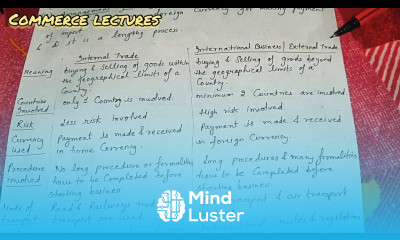 COMMERCE LECTURES
foreign currency for making payment
of import
& it is a lengthy process
Internal Trade
International Business / External Trade
Meaning
buying & selling of goods within
the geographical limits of a
Country.
buying & Selling of goods beyond
the geographical limits of a
Country
Countries
Involved
only 1 Country is involved.
minimum 2 Countries are involved
Risk
Less risk involved
High risk involved
Currency
Used
Payment is made & received
in home Currency.
Payment is made & received
in foreign Currency.
Procedure
involved
No long procedure or formalities
have to be Completed before
starting business
Long procedures & many formalities
have to be Completed before
starting business.
Mode of
transport
Road & Railways
transport are used
& air transport
Mind
Luster